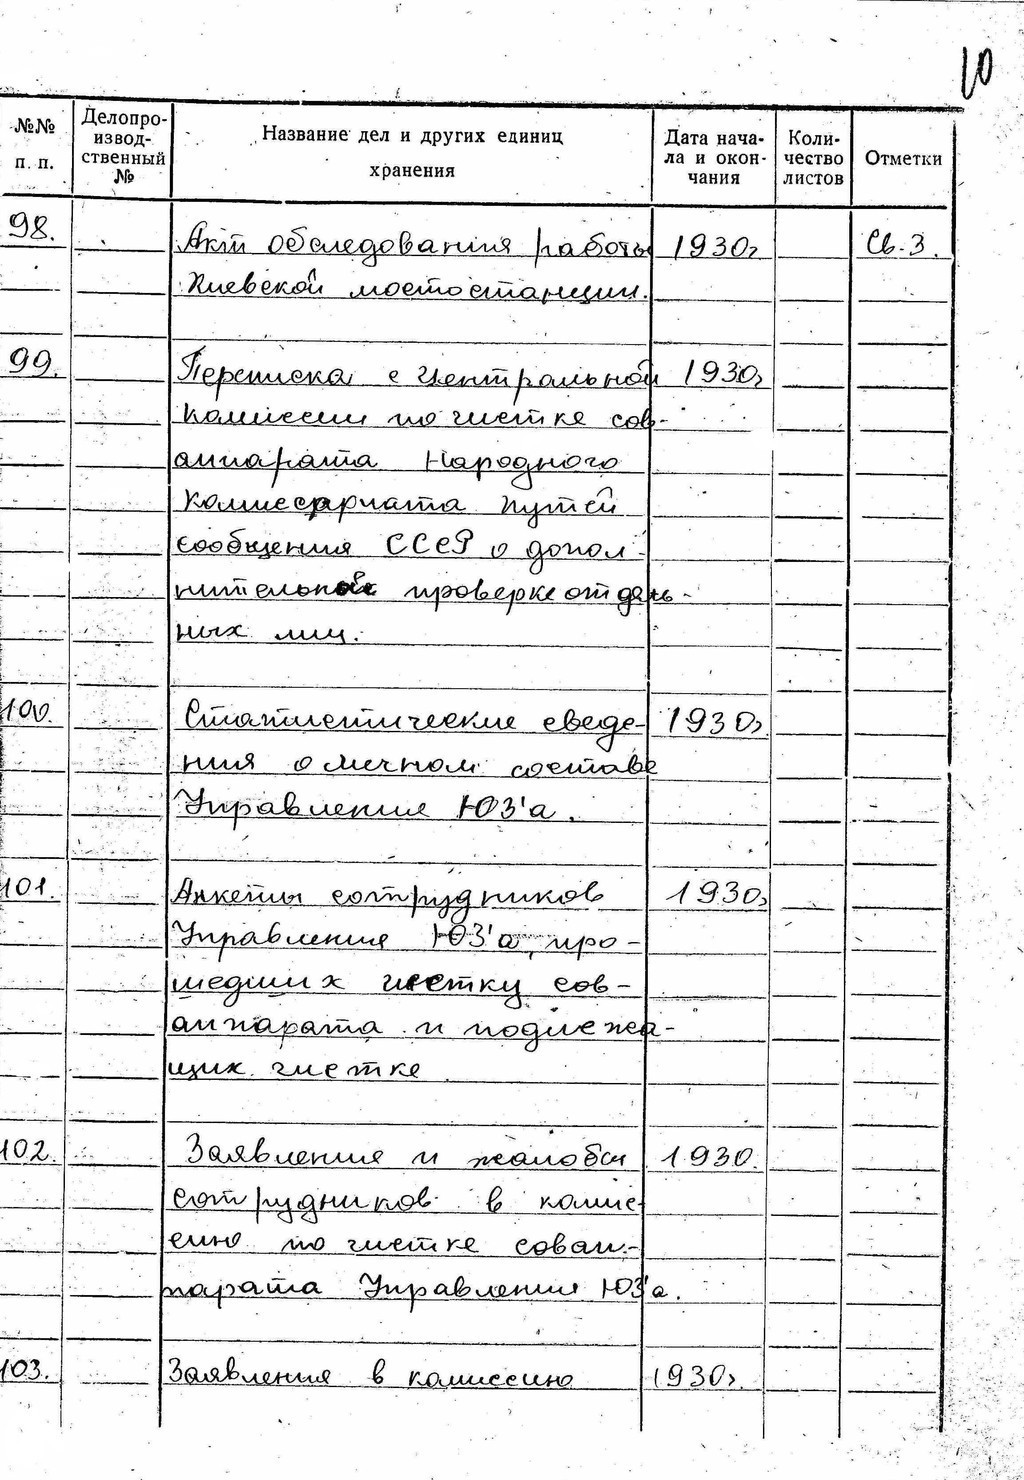 10
№№ п. п. Делопро-извод-ственный № Название дел и других единиц хранения Дата нача-ла и окон-чания Коли-чество листов Отметки
98. Акт обследования работы 1930г Св.3.
Киевской мостостанции.
99. Переписка с Центральной 1930г
комиссии по чистке сов-
аппарата Народного
Комиссариата Путей
сообщения СССР о допол-
нительной проверке отдель-
ных лиц.
100. Статистические сведе- 1930г
ния о личном составе
Управления ЮЗ'а.
101. Анкеты сотрудников 1930г
Управления ЮЗ'а, про-
шедших чистку сов-
аппарата и подлежа-
щих чистке
102. Заявления и жалобы 1930.
сотрудников в комис-
сию по чистке совап-
парата Управления ЮЗ'а.
103. Заявления в комиссию 1930г.